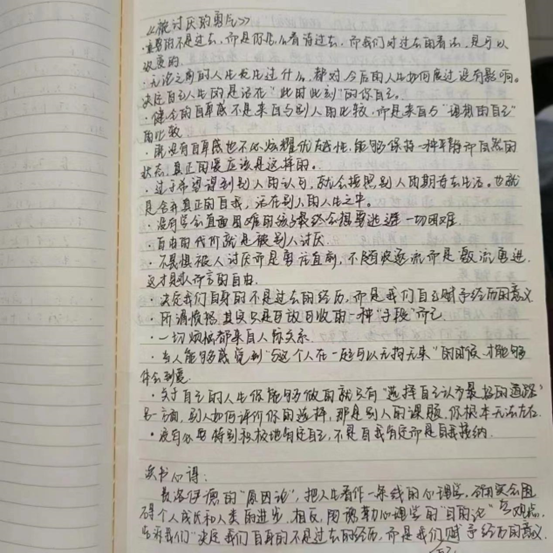 《被讨厌的勇气》
·重要的不是过去,而是你怎么看待过去,而我们对过去的看法,是可以
改变的。
·无论之前的人生发生过什么,都对今后的人生如何度过没有影响。
决定自己人生的是活在“此时此刻”的你自己。
·健全的自卑感不是来自与别人的比较,而是来自与“理想的自己”
的比较
·既没有自卑感也不必炫耀优越性,能够保持一种平静而自然的
状态,真正的爱应该是这样的。
·过于希望得到别人的认可,就会按照别人的期待去生活。也就
是舍弃真正的自我,活在别人的人生之中。
·没有学会直面困难的孩子最终会想要逃避一切困难
·自由的代价就是被别人讨厌
·不畏惧被人讨厌而是勇往直前,不随波逐流而是激流勇进,
这才是对人而言的自由.
·决定我们自身的不是过去的经历,而是我们自己赋予经历的意义
·所谓愤怒其实只是可放可收的一种“手段”而已.
·一切烦恼都来自人际关系.
·当人能够感觉到“与这个人在一起可以无拘无束”的时候,才能够
体会到爱
·关于自己的人生你能够做的就只有“选择自己认为最好的道路”
另一方面,别人如何评价你的选择,那是别人的课题,你根本无法左右.
·没有必要特别积极地肯定自己,不是自我肯定而是自我接纳.
读书心得:
弗洛伊德的“原因论”,把人生看作一条线的心理学,
碍个人成长和人类的进步.相反,阿德勒心理学的“目的论”
告诉我们“决定我们自身的不是过去的经历,而是我们赋予经历的意义.